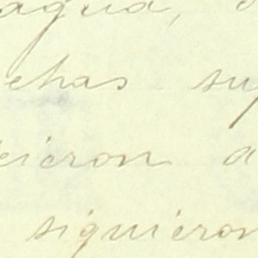 agua,
echas su
eieron a
siguieron